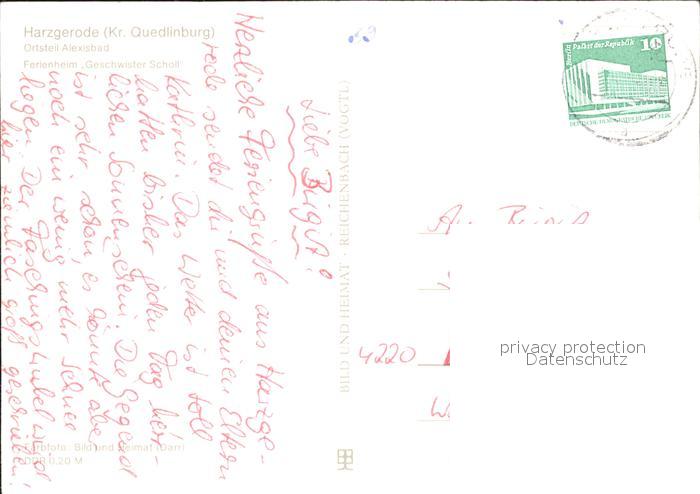 Harzgerode (Kr. Quedlinburg)
Ortsteil Alexisbad
Ferienheim „Geschwister Scholl"
Liebe Birgit!
Herzliche Feriengrüße aus Harzge-
rode sendet dir und deinen Eltern
Kathrin. Das Wetter ist toll
hatten bisher jeden Tag herr-
lichen Sonnenschein. Die Gegend
ist sehr schön es könnte aber
noch ein wenig mehr Schnee
liegen. Der Faschingstrubel wird
hier ziemlich groß geschrieben!
Farbfoto: Bild und Heimat (Darr)
DDR 0,20 M
BILD UND HEIMAT · REICHENBACH (VOGTL)
Berlin Palast der Republik
10
DEUTSCHE DEMOKRATISCHE REPUBLIK
4220
privacy protection
Datenschutz